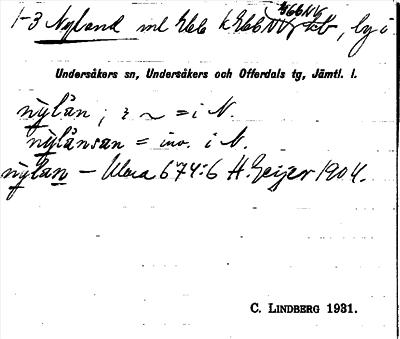 1-3 Nyland
by i
Undersåkers sn, Undersåkers och Offerdals tg, Jämtl. l.
nỳlån, ; = i N.
nỳlånsan = inv. i N.
nylan – Ulma 674:6 H. Geijer 1904.
C. LINDBERG 1931.